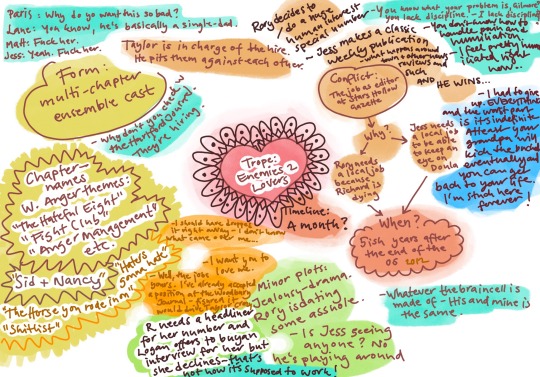 Paris: Why do yo want this so bad?
Lane: You know, he's basically a single-dad.
Matt: Fuck her.
Jess: Yeah. Fuck her.
Taylor is in charge of the hire.
He pits them against each other.
Rory decides to
do a huge
human interest
special number
- Jess makes a classic
weekly publication
what happens around
town + otherwise
reviews and
such
AND HE WINS...
-You know what your problem is, Gilmore?
you lack discipline. - I lack discipline
-You don't know how to
handle pain and
humiliation.
- I feel pretty humi
liated right
now..
Form:
multi-chapter
ensemble cast
-Why don't you check w
the Hartford Journal?
They're hiring.
Conflict:
The job as editor
at Stars Hollow
Gazette
Why?
Rory needs
a local job
because
Richard is
dying
Jess needs
a local job
to be able
to keep an
eye on
Doula
- I had to give
up EVERYTHING
and the worst part
is its indefinite.
At least your
grandpa will
kick the bucket
eventually and
you can get
back to your life.
I'm stuck here
forever!
Trope:
Enemies 2
Lovers
Timeline:
A month?
When?
5ish years after
the end of the
OS 2012
Chapter
names
w. Anger themes:
"The Hateful Eight"
"Fight Club"
"Anger Management"
etc.
"Sid + Nancy"
"Haters
gonna hate"
"The Horse you rode in on"
"Shitlist"
-I should have dropped
it right away - I don't know
what came over me...
-I want you to
love me.
-Well, the jobs
yours. I've already accepted
a position at the Woodbury
Journal - figured it
would
R needs a headliner
for her number and
Logan offers to buy an
interview for her but
she declines - that's
not how its supposed to work!
Minor plots:
Jealousy-drama.
Rory is dating
some asshole.
- Is Jess seeing
anyone? No
he's playing around
-Whatever the braincell is
made of - His and mine is
the same.